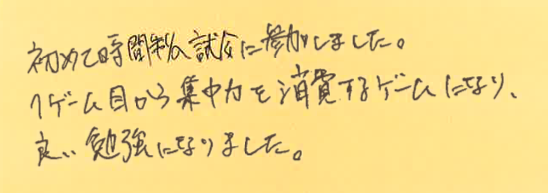 初めて時間制の試合に参加しました。
1ゲーム目から集中力を消費するゲームになり、
良い勉強になりました。